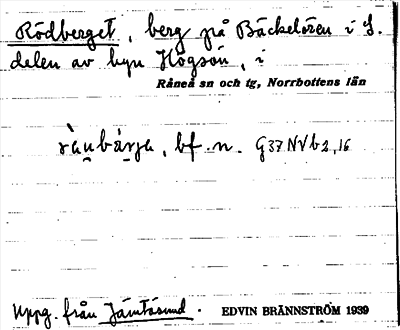 Rödberget, berg på Bäckelören i S.
delen av byn Högsön, i
Råneå sn och tg, Norrbottens län
bf. n. G37NVb2,16
Uppg. från Jämtösund.
EDVIN BRÄNNSTRÖM 1939